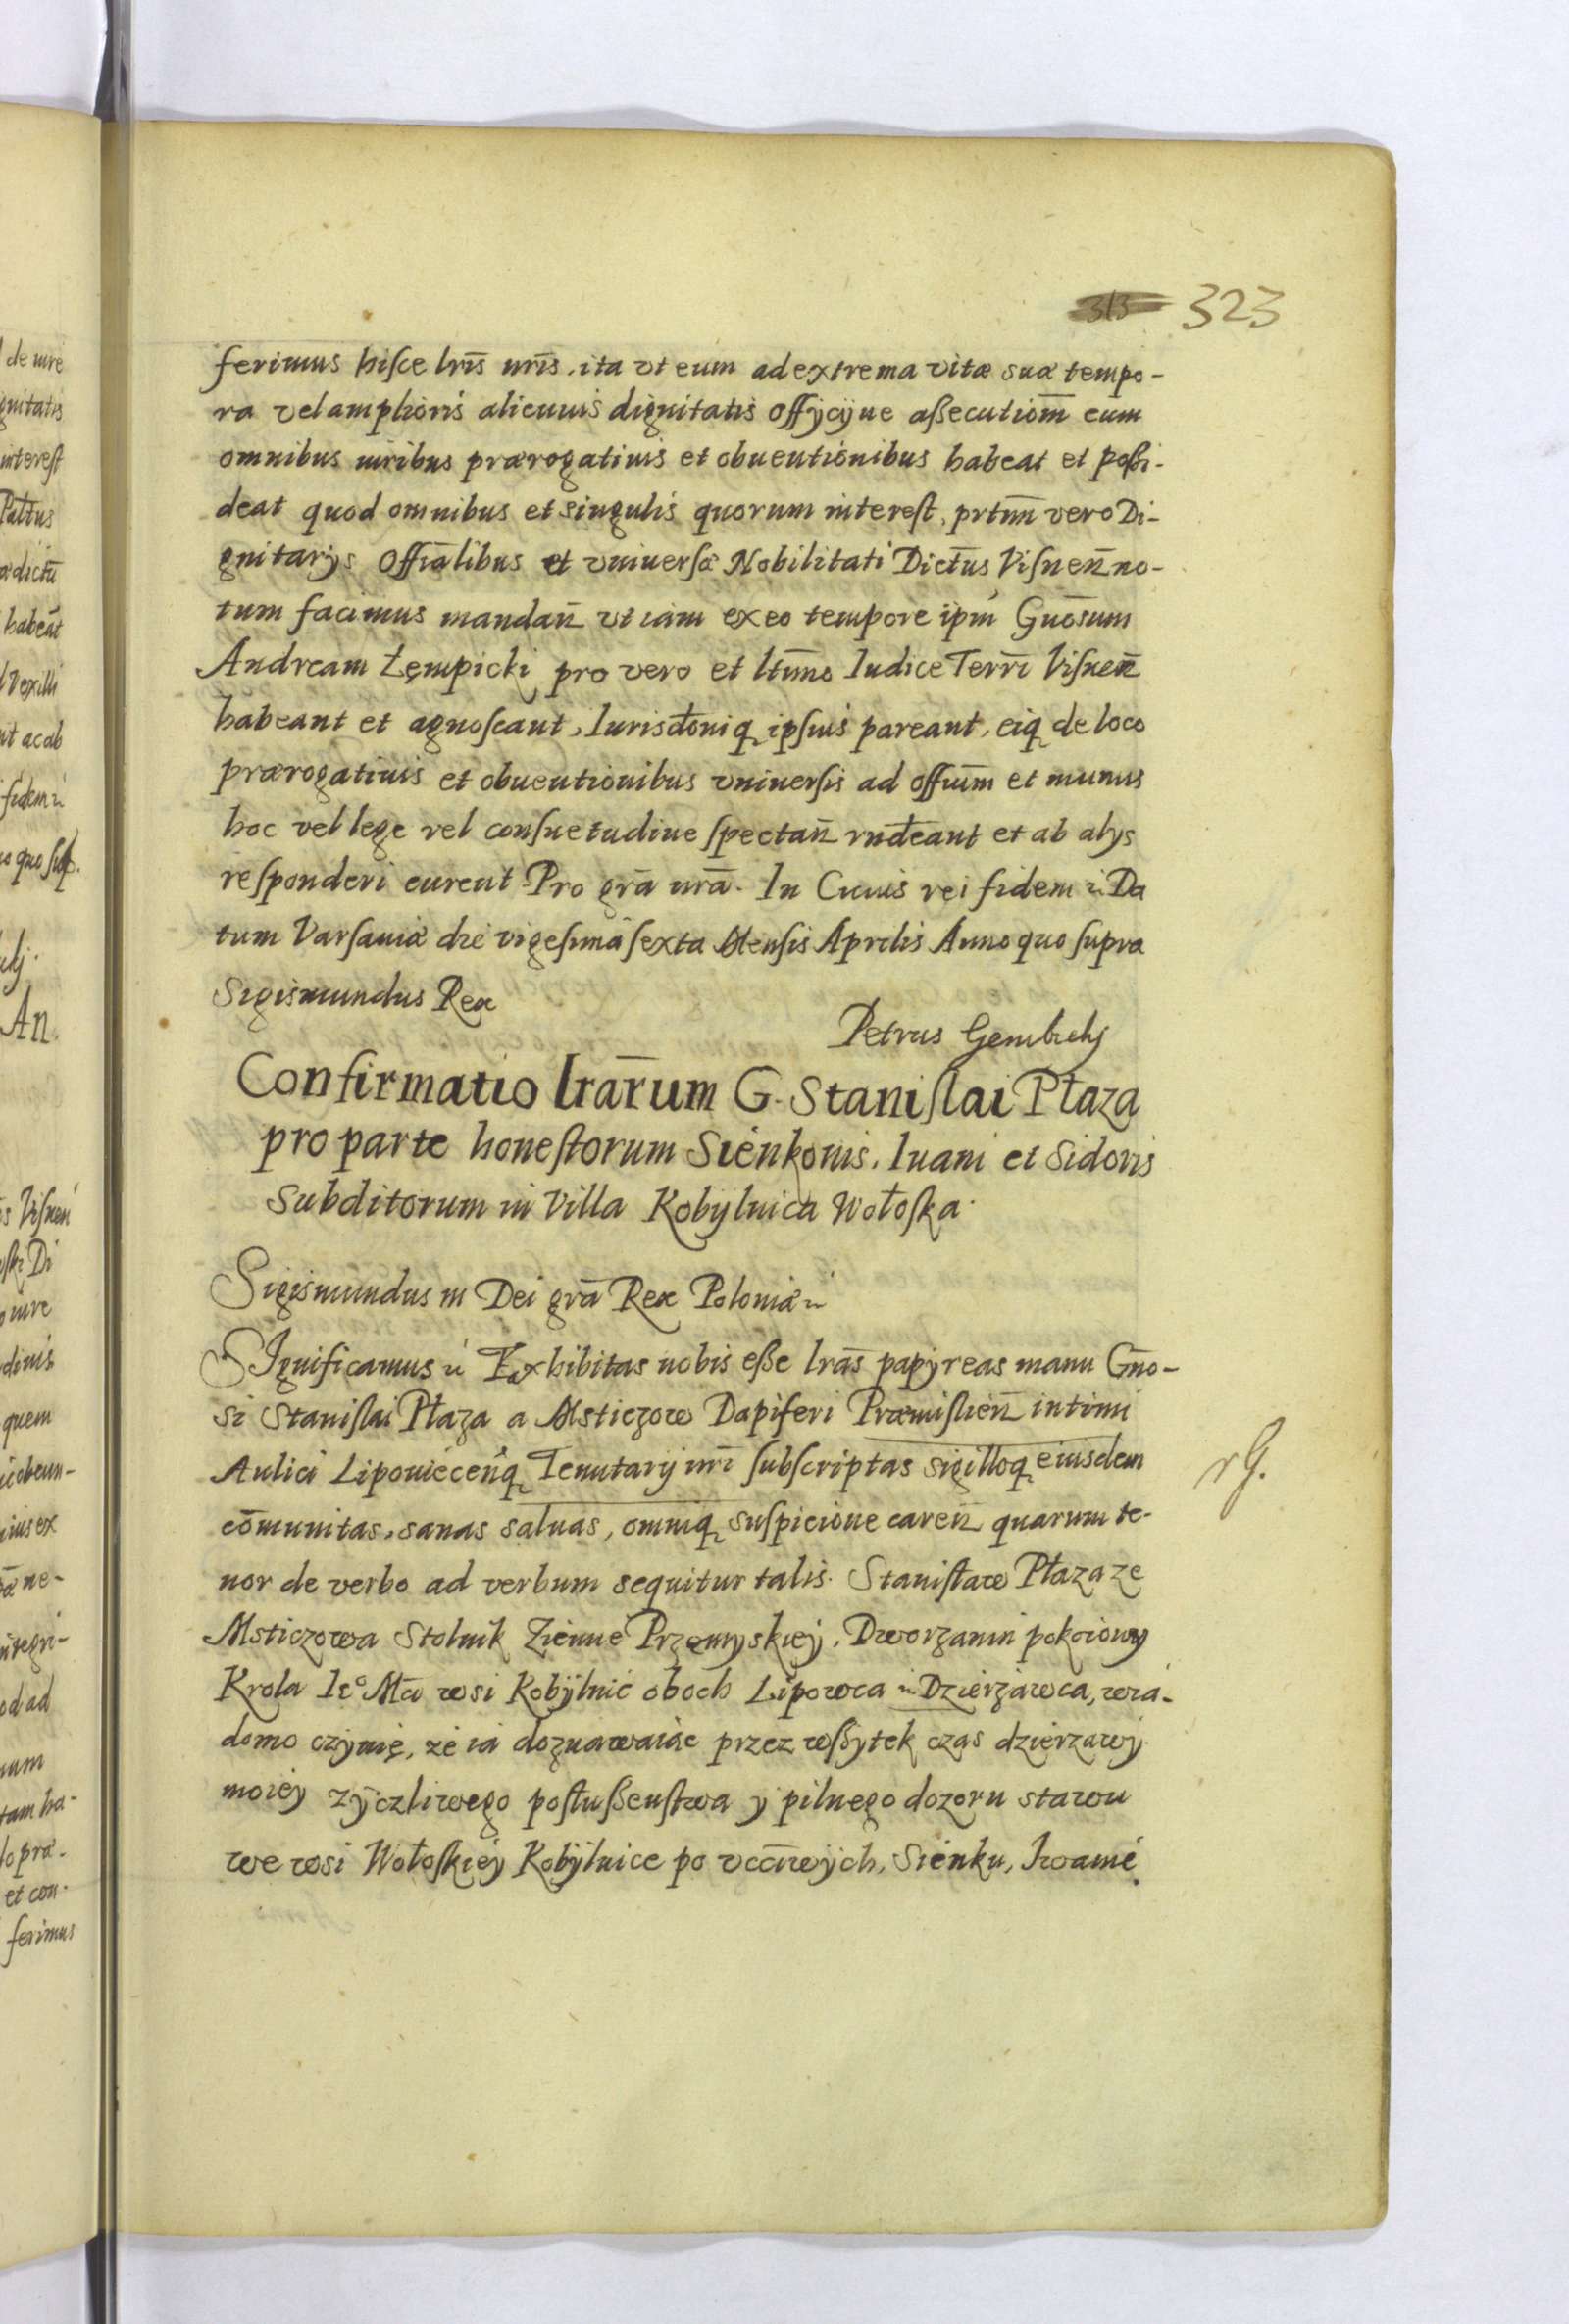 313 323
ferimus hisce lris nris, ita vt eum ad extrema vitæ suæ tempo-
ra vel amplioris alicuius dignitatis officÿue aßecutiom eum
omnibus iuribus prærogatiuis et obuentionibus habeat et poßi-
deat quod omnibus et singulis quorum interest, prtim vero Di-
gnitarÿs Offialibus et vniuersæ Nobilitati Dictus Visnen no-
tum facimus mandan vt iam ex eo tempore ipm Gnosum
Andream Łępicki pro vero et ltimo Iudice Terri Visnen
habeant et agnoscant, Iurisdoniq ipsius pareant, eiq de loco
prærogatiuis et obuentionibus vniuersis ad offium et munus
hoc vel lege vel consuetudine spectan rndeant et ab alÿs
responderi curent Pro gra nra. In Cuius rei fidem etc Da
tum Varsauiæ die vigesima sexta Mensis Aprilis Anno quo supra
Sigismundus Rex
Petrus Gembickj
Confirmatio lrarum G. Stanislai Płaza
pro parte honestorum Sienkonis, Iuani et Sidoris
Subditorum in Villa Kobÿlnica Wołoska.
Sigismundus III Dei gra Rex Poloniæ etc
SIgnificamus etc Exhibitas nobis eße lras papÿreas manu Gno-
si Stanislai Płaza a Msticzow Dapiferi Præmislien intimi
Aulici Lipouiecenq Tenutarÿ nri subscriptas sigilloq eiusdem
rG.
comunitas, sanas saluas, omniq suspicione caren quarum te-
nor de verbo ad verbum sequitur talis. Stanisław Płaza ze
Msticzowa Stolnik Ziemie Przemyskiey, Dworzanin pokoiowy
Krola Ie° Mci wsi Kobÿlnic oboch Lipowca etc Dzierzawca, wia-
domo czÿnię, że ia doznawaiąc przez wßÿtek czas dzierzawÿ
moiey zÿczliwego posłußenstwa y pilnego dozoru stawu
we wsi Wołoskieÿ Kobÿlnice po vcciwÿch, Sienku, Iwanie